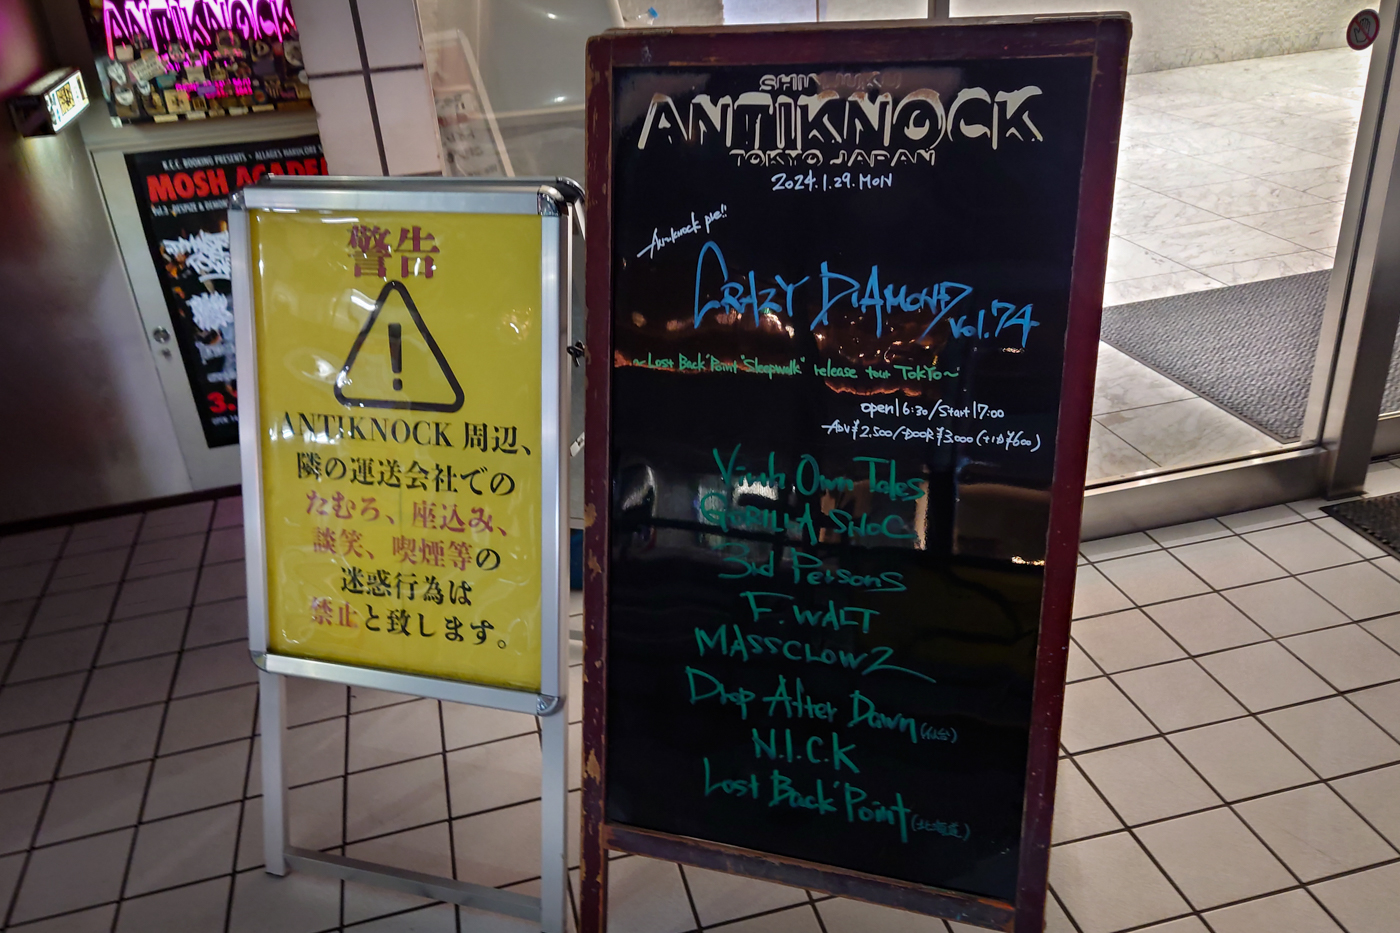 ANTIKNOCK
N.C.E. BOOKING PRESENTS
MOSH ACADE
警告
!
ANTIKNOCK 周辺、
隣の運送会社での
たむろ、座込み、
談笑、喫煙等の
迷惑行為は
禁止と致します。
ANTIKNOCK
TOKYO JAPAN
2024.1.29.MON
Antiknock pre!!
CRAZY DIAMOND
Vol.74
~Lost Back'Point "Sleepwalk" release tour TOKYO~
open16:30/Start17:00
ADV¥2,500/DOOR¥3000(+1D¥600)
Own Tales
GORILLA SHOC
3rd Persons
F.WALT
MASSCLOWZ
Drop After Dawn(仙台)
N.I.C.K
Lost Back'Point(北海道)